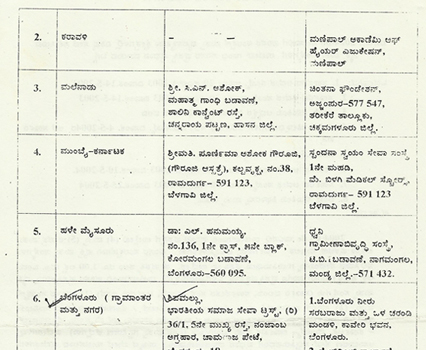 2. ಕರಾವಳಿ – – ಮಣಿಪಾಲ್ ಅಕಾಡೆಮಿ ಆಫ್
ಹೈಯರ್ ಎಜುಕೇಶನ್,
ಮಣಿಪಾಲ್
3. ಮಲೆನಾಡು
ಶ್ರೀ. ಸಿ.ಎನ್. ಅಶೋಕ್,
ಮಹಾತ್ಮ ಗಾಂಧಿ ಬಡಾವಣೆ,
ಶಾಲಿನಿ ಕಾನ್ವೆಂಟ್ ರಸ್ತೆ,
ಚನ್ನರಾಯ ಪಟ್ಟಣ, ಹಾಸನ ಜಿಲ್ಲೆ.
ಚಿಂತನಾ ಫೌಂಡೇಶನ್,
ಅಜ್ಜಂಪುರ-577 547,
ತರೀಕೆರೆ ತಾಲ್ಲೂಕು,
ಚಿಕ್ಕಮಗಳೂರು ಜಿಲ್ಲೆ.
4. ಮುಂಬೈ-ಕರ್ನಾಟಕ
ಶ್ರೀಮತಿ. ಪೂರ್ಣಿಮಾ ಅಶೋಕ ಗೌರೂಜಿ,
(ಗೌರೂಜಿ ಆಸ್ಪತ್ರೆ), ಕಲ್ಪವೃಕ್ಷ, ನಂ.38,
ರಾಮದುರ್ಗ- 591 123.
ಬೆಳಗಾವಿ ಜಿಲ್ಲೆ.
ಸ್ಪಂದನಾ ಸ್ವಯಂ ಸೇವಾ ಸಂಸ್ಥೆ
1ನೇ ಮಹಡಿ,
ಮೆ. ಬಿಳಗಿ ಮೆಡಿಕಲ್ ಸ್ಟೋರ್ಸ್,
ರಾಮದುರ್ಗ- 591 123
ಬೆಳಗಾವಿ ಜಿಲ್ಲೆ.
5. ಹಳೇ ಮೈಸೂರು
ಡಾ: ಎಲ್. ಹನುಮಯ್ಯ,
ನಂ.136, 1ನೇ ಕ್ರಾಸ್, 5ನೇ ಬ್ಲಾಕ್,
ಕೋರಮಂಗಲ ಬಡಾವಣೆ,
ಬೆಂಗಳೂರು-560 095.
ಧ್ವನಿ
ಗ್ರಾಮೀಣಾಭಿವೃದ್ಧಿ ಸಂಸ್ಥೆ,
ಟಿ.ಬಿ. ಬಡಾವಣೆ, ನಾಗಮಂಗಲ,
ಮಂಡ್ಯ ಜಿಲ್ಲೆ.-571 432.
6. ಬೆಂಗಳೂರು ( ಗ್ರಾಮಾಂತರ
ಮತ್ತು ನಗರ)
ಶಿವಮಲ್ಲು,
ಭಾರತೀಯ ಸಮಾಜ ಸೇವಾ ಟ್ರಸ್ಟ್, (ರಿ)
36/1, 5ನೇ ಮುಖ್ಯ ರಸ್ತೆ, ನಂಜಾಂಬ
ಅಗ್ರಹಾರ, ಚಾಮರಾಜ ಪೇಟೆ,
1.ಬೆಂಗಳೂರು ನೀರು
ಸರಬರಾಜು ಮತ್ತು ಒಳ ಚರಂಡಿ
ಮಂಡಳಿ, ಕಾವೇರಿ ಭವನ,
ಬೆಂಗಳೂರು.